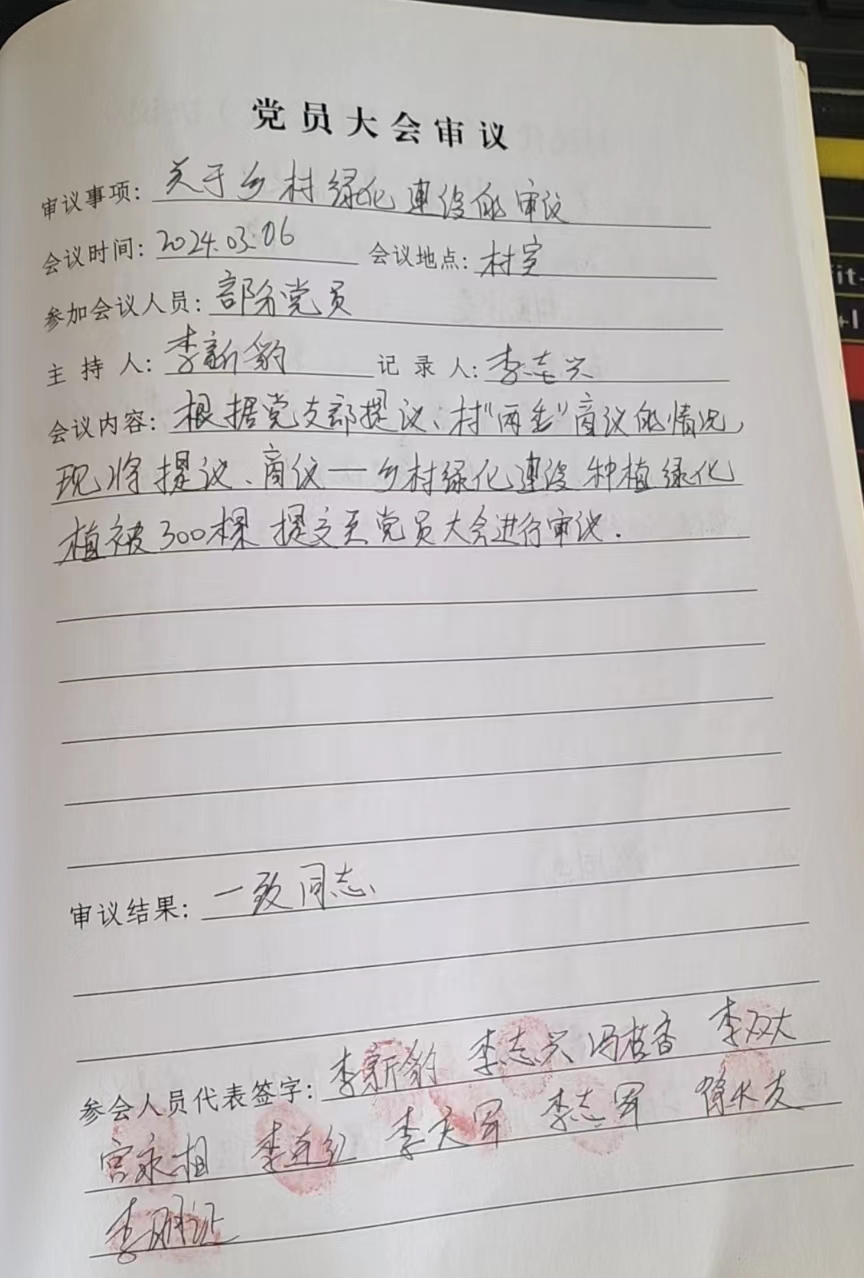 党员大会审议
审议事项：关于乡村绿化建设的审议
会议时间：2024.03.06 会议地点：村室
参加会议人员：部分党员
主持人：李新豹 记录人：李志兴
会议内容：根据党支部提议、村“两委”商议的情况，
现将提议、商议一乡村绿化建设种植绿化
植被300棵提交至党员大会进行审议.
审议结果：一致同志、
参会人员代表签字：李新豹 李志兴 李双大
宫永相 李天军 李志军